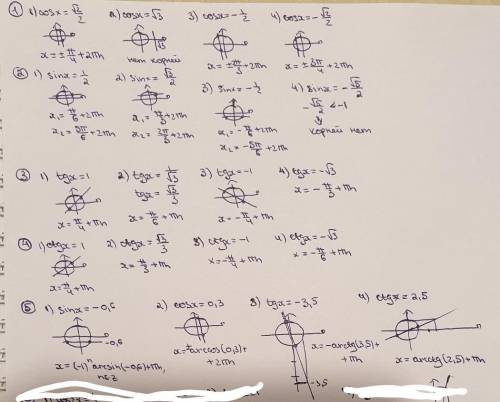 ① 1) cosx = √2/2 2) cosx = √3 3) cosx = -1/2 4) cosx = -√2/2
x = ±π/4 + 2πn нет корней x = ±π/3 + 2πn x = ±3π/4 + 2πn
② 1) sinx = 1/2 2) sinx = √3/2 3) sinx = -1/2 4) sinx = -√5/2
-√5/2 < -1
x₁ = π/6 + 2πn x₁ = π/3 + 2πn x₁ = -π/6 + 2πn корней нет
x₂ = 5π/6 + 2πn x₂ = 2π/3 + 2πn x₂ = -5π/6 + 2πn
③ 1) tgx = 1 2) tgx = 1/√3 3) tgx = -1 4) tgx = -√3
tgx = √3/3 x = -π/3 + πn
x = π/4 + πn x = π/6 + πn x = -π/4 + πn
④ 1) ctgx = 1 2) ctgx = √3/3 3) ctgx = -1 4) ctgx = -√3
x = π/4 + πn x = π/3 + πn x = -π/4 + πn x = -π/6 + πn
⑤ 1) sinx = -0,6 2) cosx = 0,3 3) tgx = -3,5 4) ctgx = 2,5
-0,6
x = (-1)ⁿ arcsin(-0,6) + πn, n∈Z
x = ±arccos(0,3) + 2πn
x = -arctg(3,5) + πn
x = arcctg(2,5) + πn
-3,5